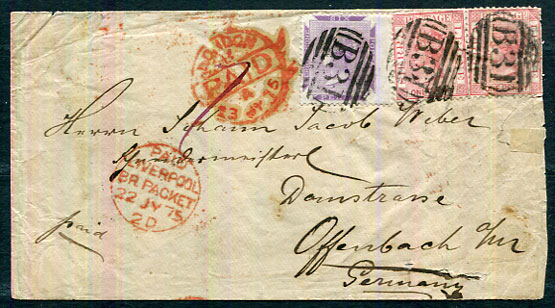 LONDON
PAID
23 JY 75
SIX
B31
B31
B31
Herrn Johann Jacob Weber
PAID
LIVERPOOL
BR. PACKET
22 JY 75
2D
Domstrasse
paid
Offenbach a/m
Germany